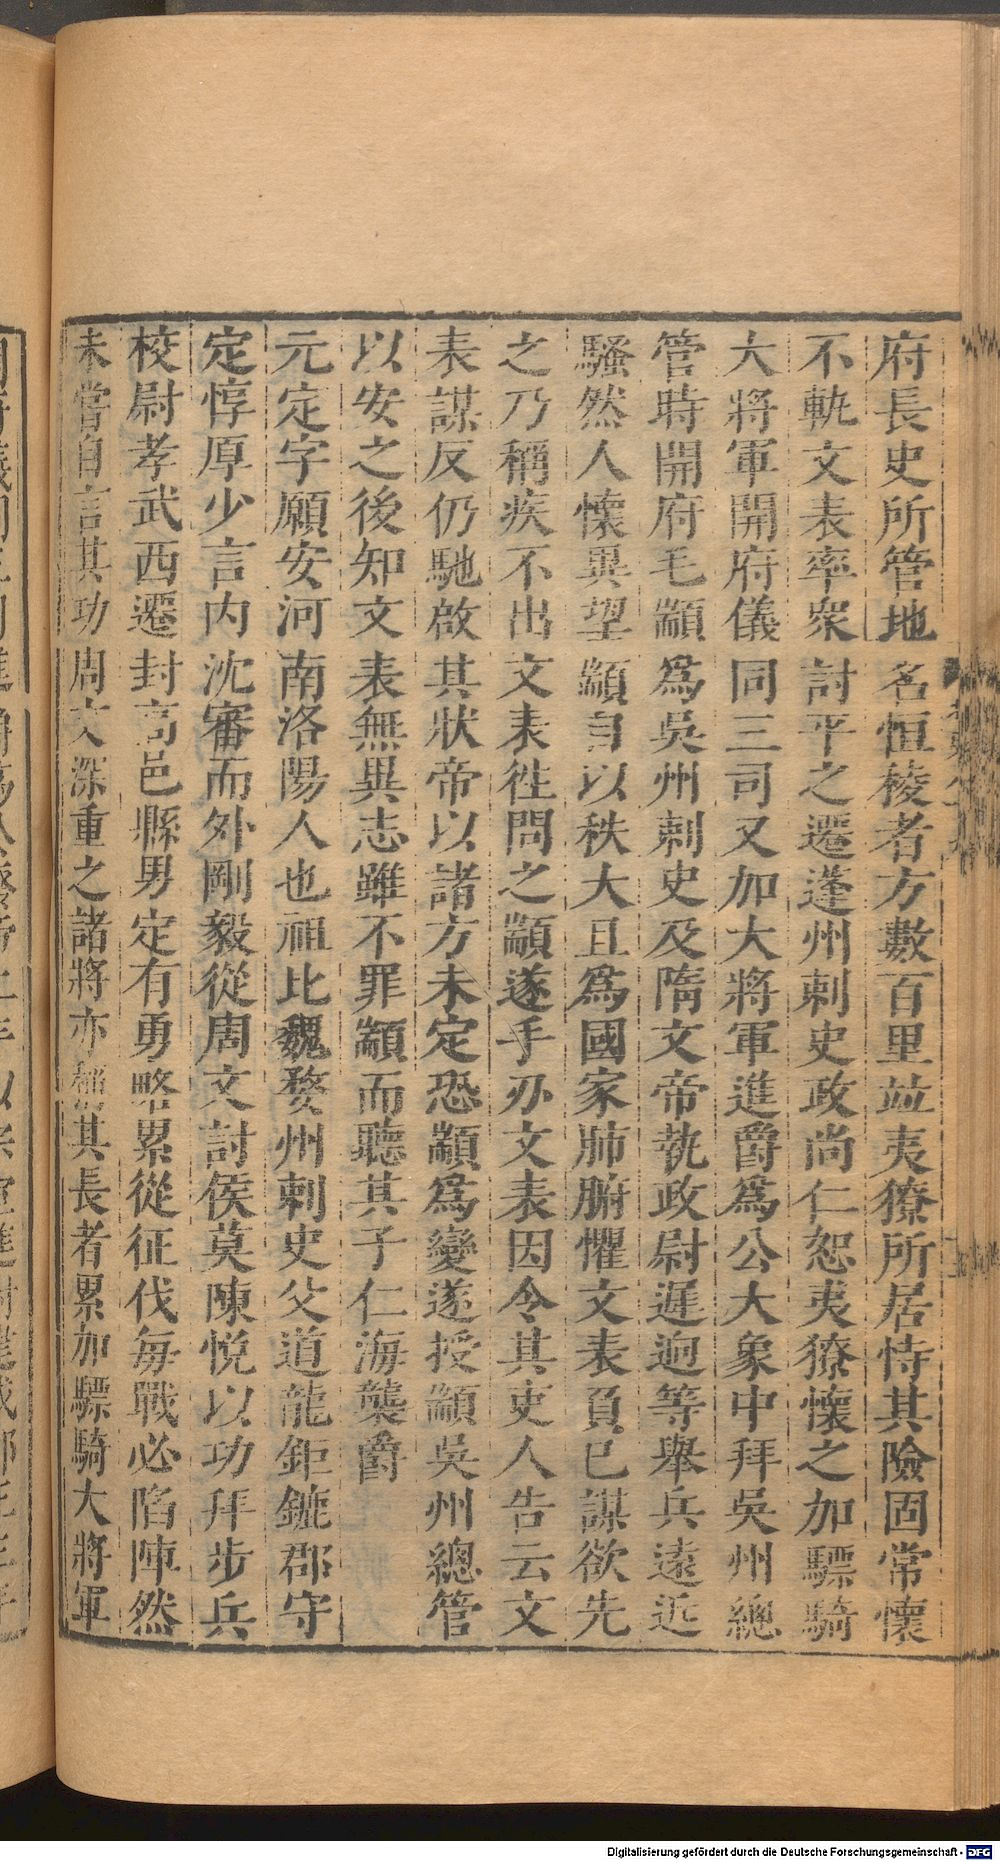 府長史所管地名恒稜者方數百里竝夷獠所居恃其險固常懷
不軌文表率眾討平之遷蓬州刺史政尚仁恕夷獠懷之加驃騎
大將軍開府儀同三司又加大將軍進爵爲公大象中拜吳州總
管時開府毛顓爲吳州刺史及隋文帝執政尉遲迥等舉兵遠近
騷然人懷異望顓自以秩大且爲國家肺腑懼文表負已謀欲先
之乃稱疾不出文表徃問之顓遂手刃文表因令其吏人告云文
表謀反仍馳啟其狀帝以諸方未定恐顓爲變遂授顓吳州總管
以安之後知文表無異志雖不罪顓而聽其子仁海襲爵
元定字願安河南洛陽人也祖比魏婺州刺史父道龍鉅鏕郡守
定惇厚少言内沈審而外剛毅從周文討侯莫陳悅以功拜步兵
校尉孝武西遷封高邑縣男定有勇略累從征伐每戰必陷陣然
未嘗自言其功周文深重之諸將亦稱其長者累加驃騎大將軍
Digitalisierung gefördert durch die Deutsche Forschungsgemeinschaft - DFG